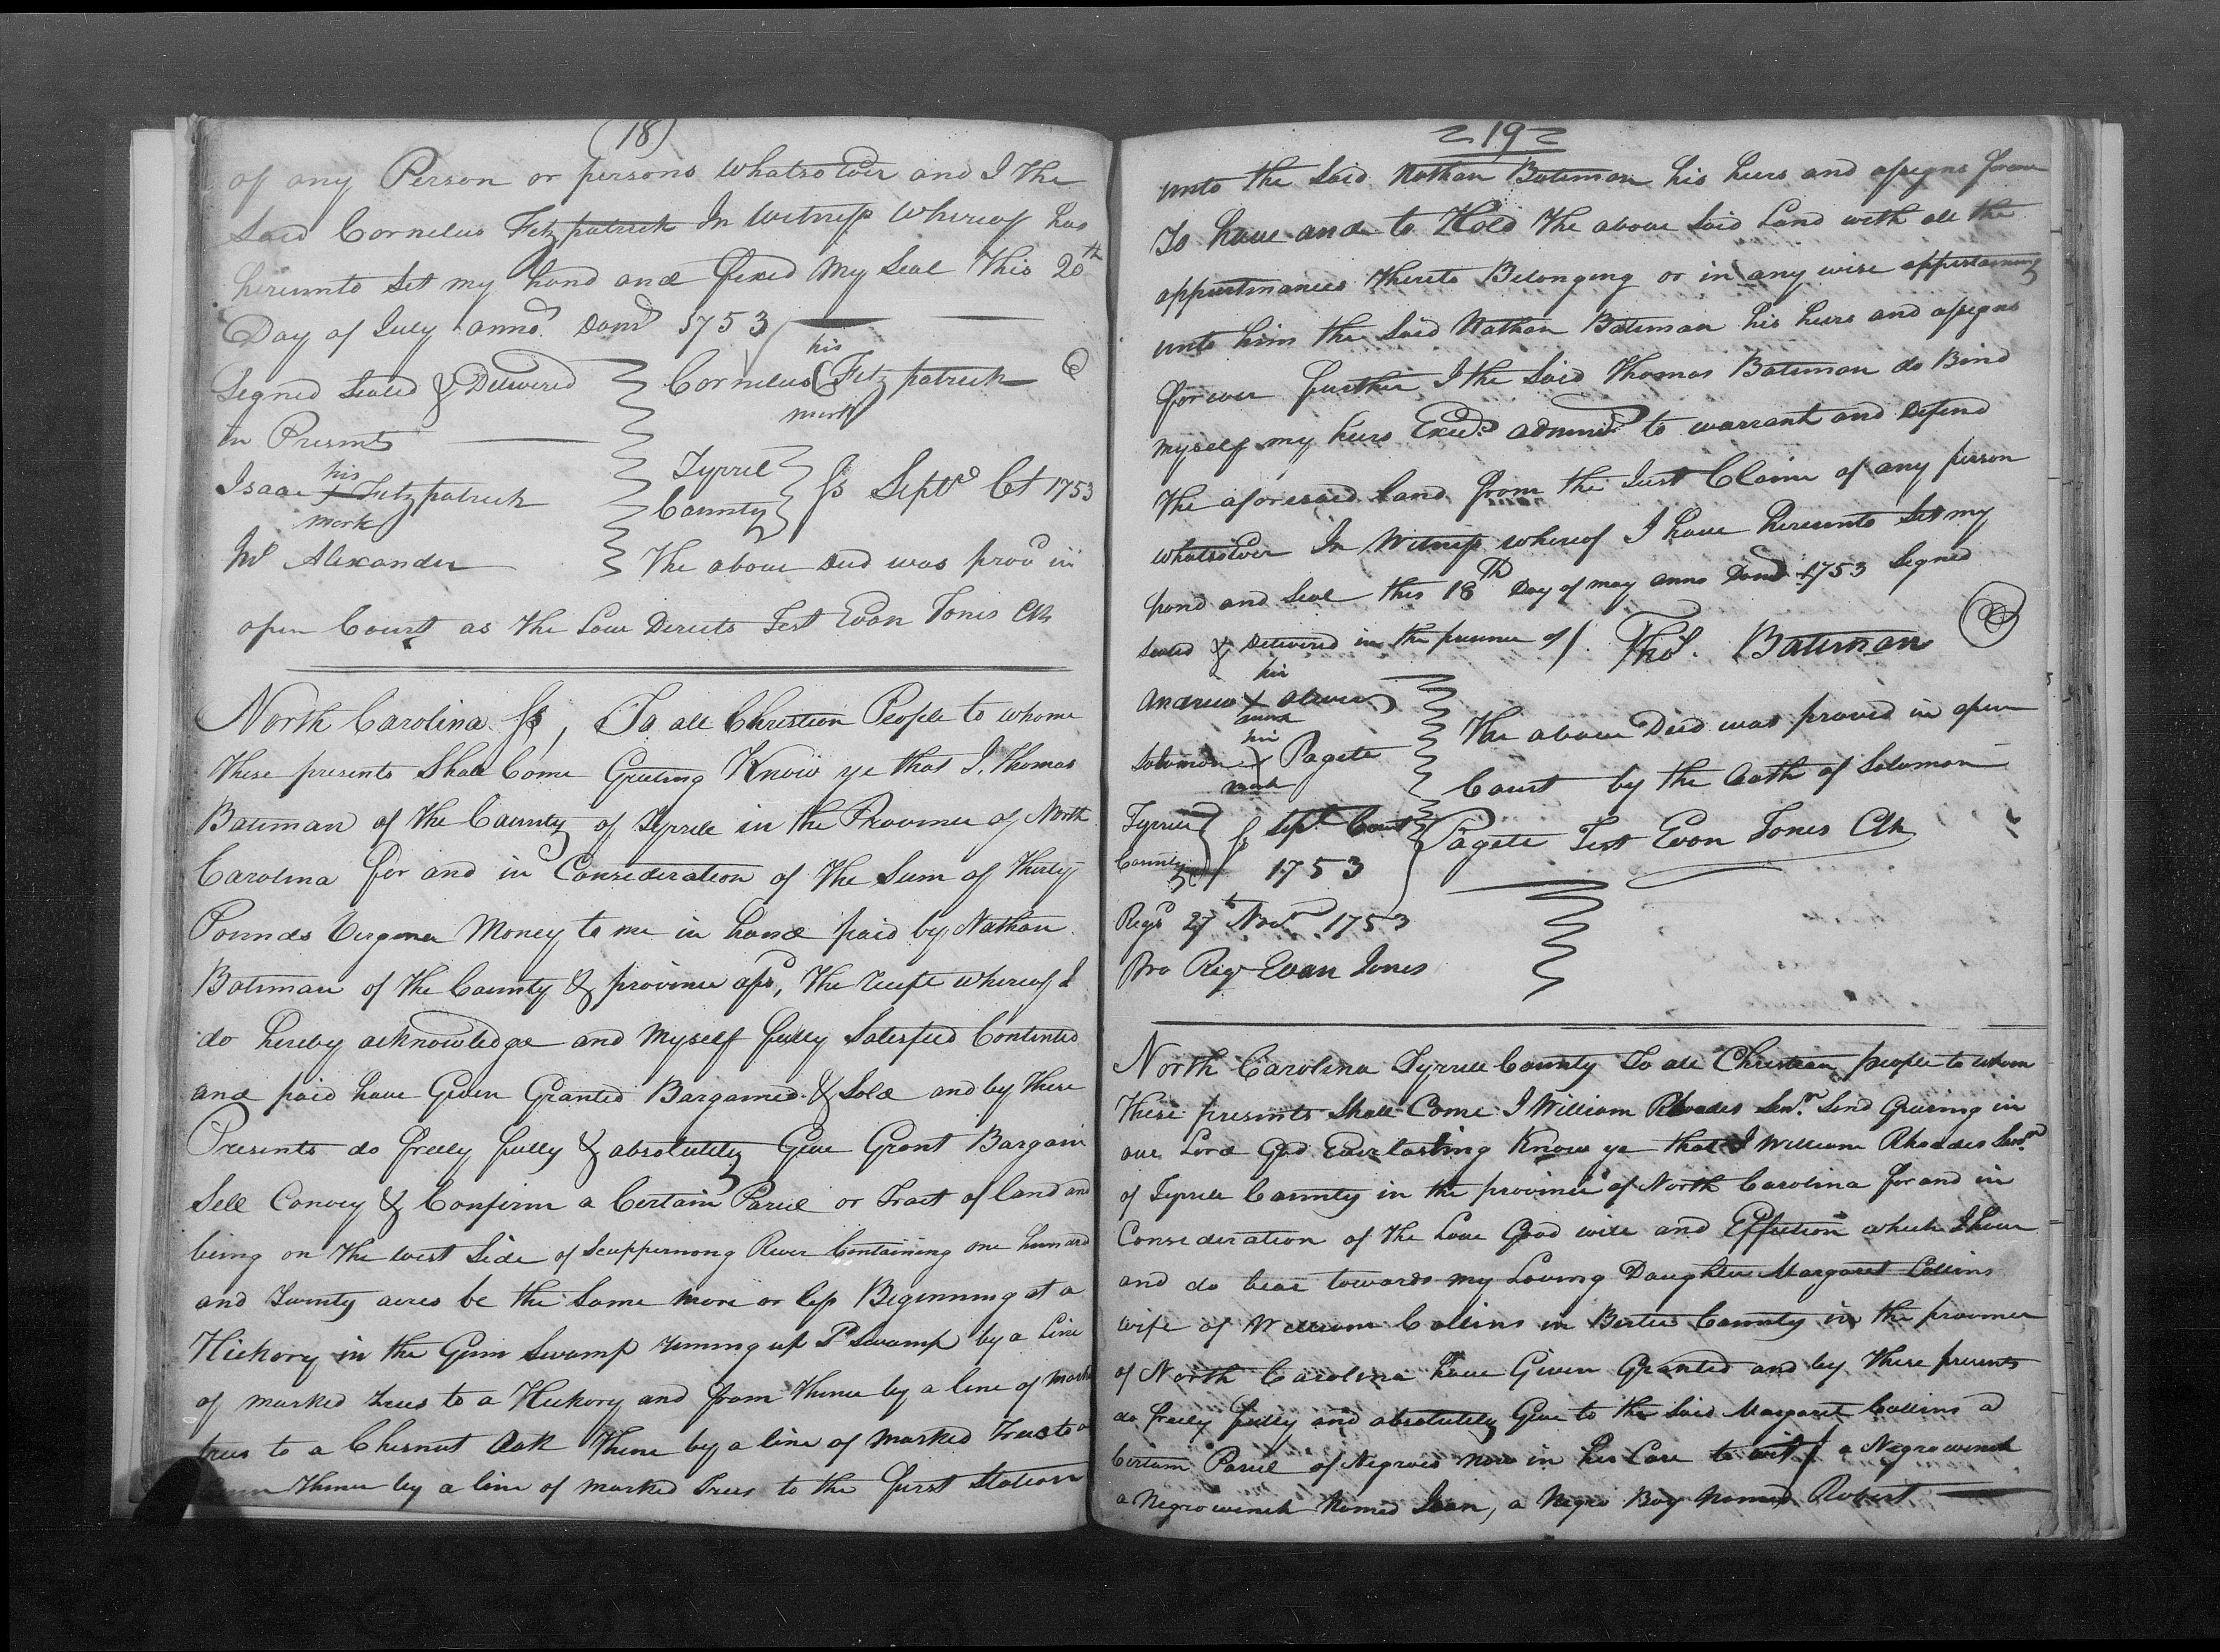 (18)
of any Person or persons whatsoever and I the
Said Cornelius Fitzpatrick In Witness Whereof has
hereunto Set my hand and fixed My Seal This 20th
Day of July anno. Domd 1753
Signed Sealed & Delivered
in Presents
his
Cornelius C Fitzpatrick
mark
his
Isaac + Fitzpatrick
mark
Alexander
Tyrrel
County
Ss Septr Ct 1753
The above deed was provd in
open Court as the Law Directs Test Evan Jones Clk
North Carolina Ss, To all Christian People to whome
These presents Shall Come Greeting Know ye that I, Thomas
Bateman of the County of Tyrrele in the Province of North
Carolina for and in Consideration of the Sum of Thirty
Pounds Virginia Money to me in hand paid by Nathan
Bateman of the County & province afsd, The receipt whereof I
do hereby acknowledge and Myself fully Satisfied Contented
and paid have Given Granted Bargained & Sold and by These
Presents do freely fully & absolutely Give Grant Bargain
Sell Convey & Confirm a Certain Parcel or Tract of land and
being on the west Side of Scuppernong River Containing one hundred
and Twenty acres be the Same more or less Beginning at a
Hickory in the Gum Swamp running up Sd Swamp by a line
of marked trees to a Hickory and from thence by a line of markd
trees to a Chesnut Oak thence by a line of marked Trees to a
thence by a line of marked Trees to the first Station
19
unto the Said Nathan Bateman his heirs and assigns forever
To have and to Hold the above Said Land with all the
appurtinances thereto Belonging or in any wise appertaining
unto him the Said Nathan Bateman his heirs and assigns
forever further I the Said Thomas Bateman do Bind
myself my heirs Exers adminrs to warrant and Defend
the aforesaid land from the Just Claim of any person
whatsoever In Witness whereof I have hereunto Set my
hand and Seal this 18th Day of may anno Domd 1753 Signed
Sealed & Delivered in the presence of Thos. Bateman
his
Andrew + oliver
mark
his
Solomon Pagete
mark
The above Deed was proved in open
Court by the Oath of Solomon
Pagete Test Evan Jones Clk
Tyrrele
County
Ss Sept. Court
1753
Regd 27th Novr 1753
Pro Regr Evan Jones
North Carolina Tyrrele County To all Christian people to whom
These presents Shall Come I William Rhoades Senr. Send Greeting in
our Lord God Everlasting Know ye that I William Rhoades Senr.
of Tyrrele County in the province of North Carolina for and in
Consideration of the Love Good will and Effection which I have
and do bear towards my Loving Daughter Margaret Collins
wife of William Collins in Bertie County in the province
of North Carolina have Given Granted and by these presents
do freely fully and absolutely Give to the Said Margaret Collins a
Certain Parcel of Negroes now in her Care to wit a Negro wench
a Negro wench Named Jean, a Negro Boy Named Robert